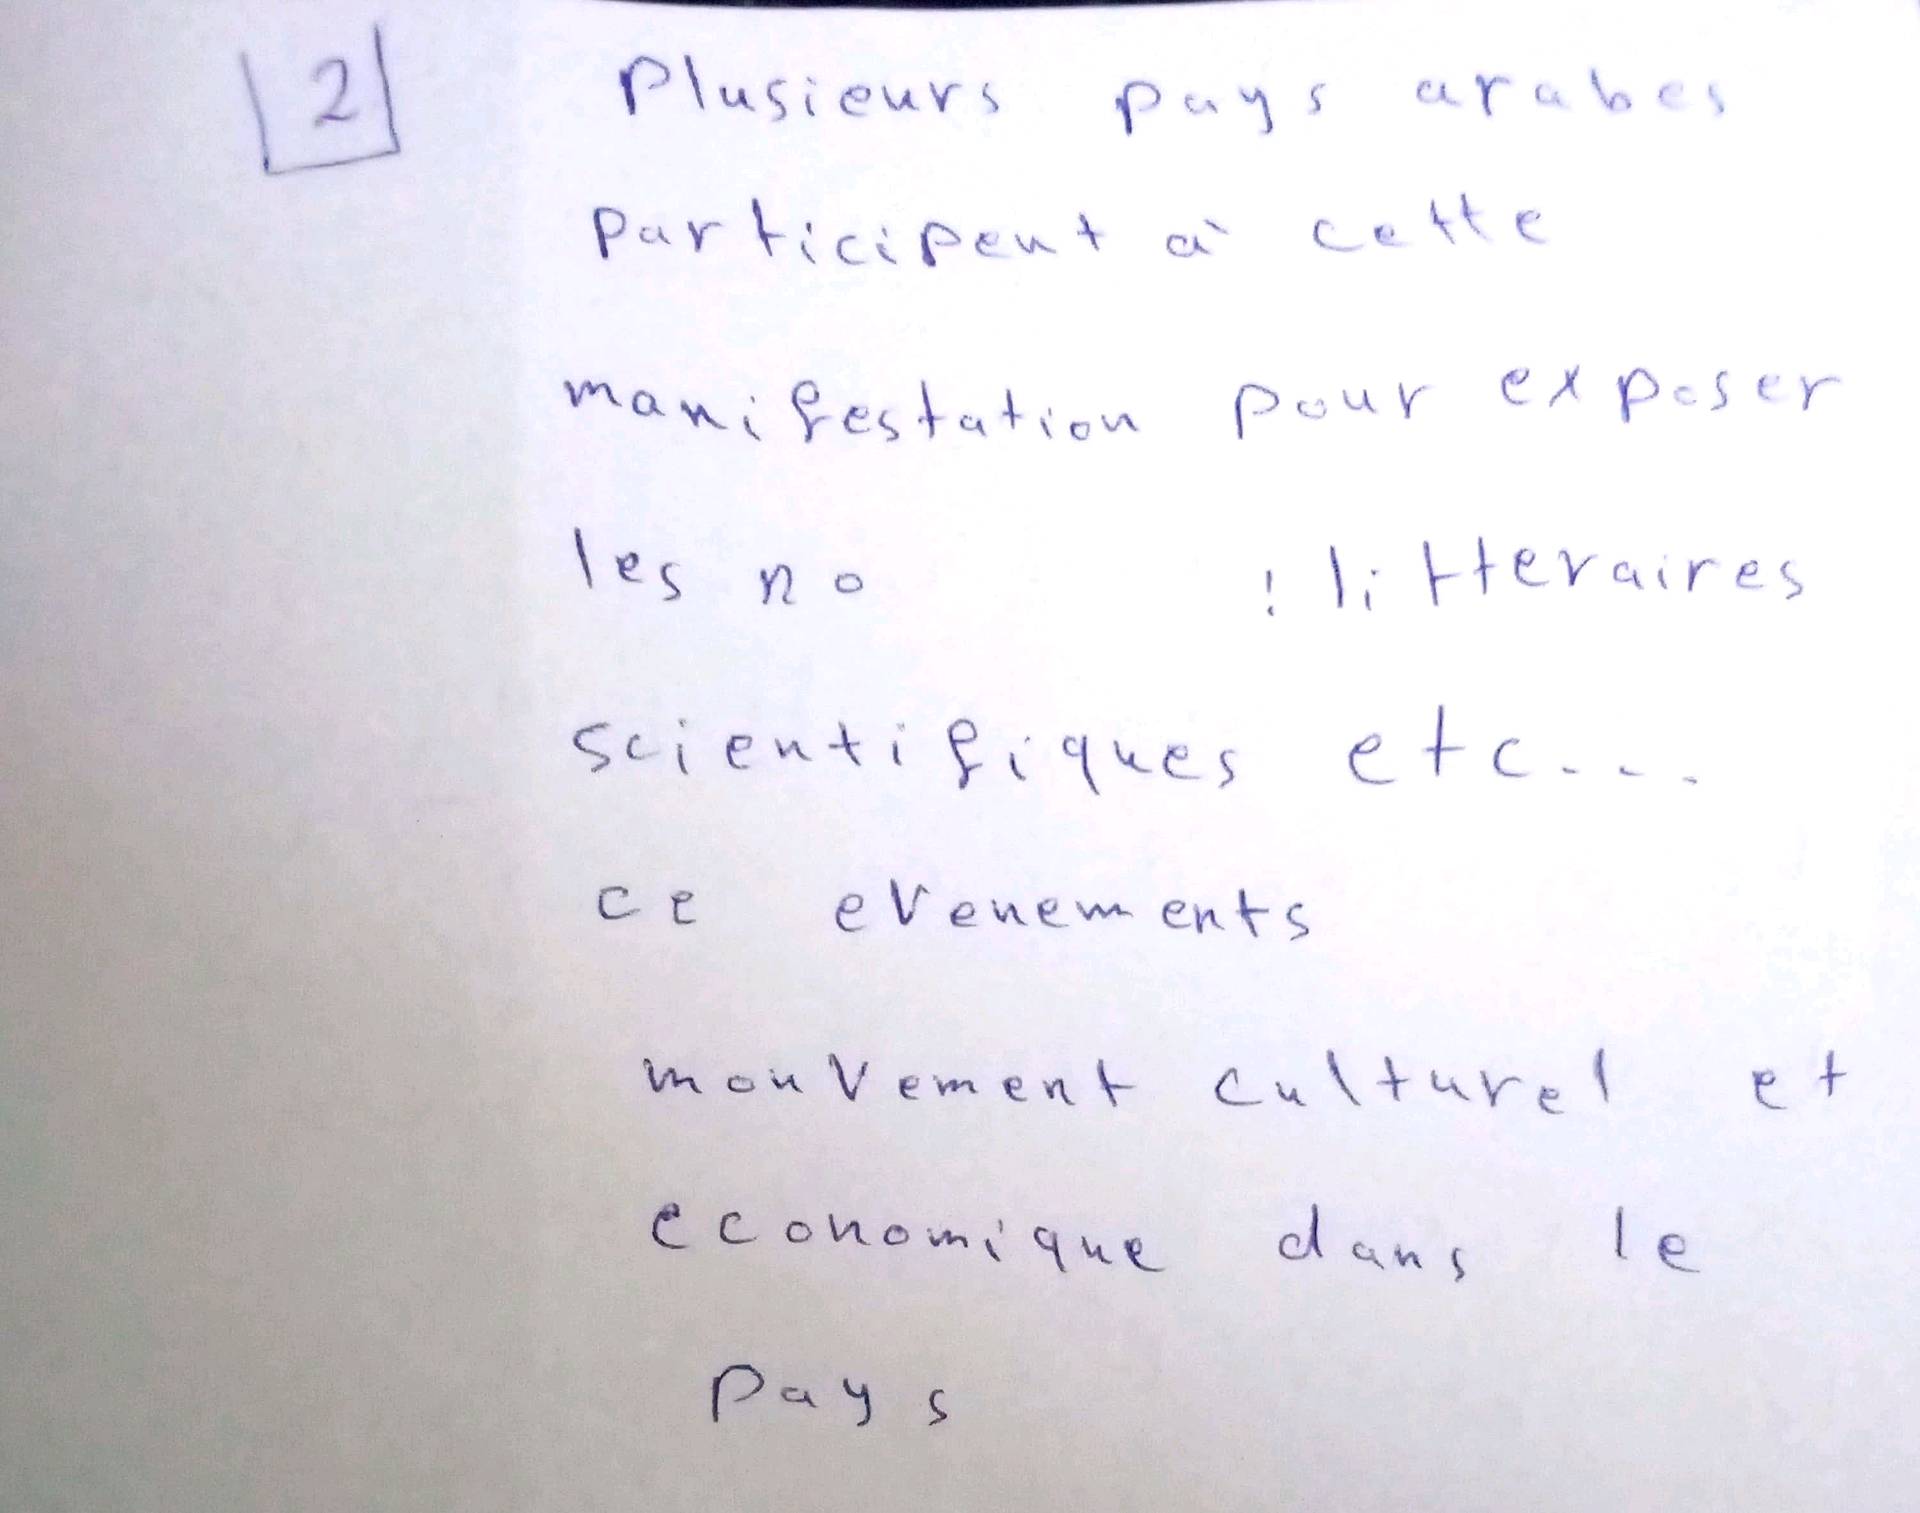 2
Plusieurs pays arabes
participent à cette
manifestation pour exposer
les no : litteraires
scientifiques etc...
ce evenements
mouvement culturel et
economique dans le
pays